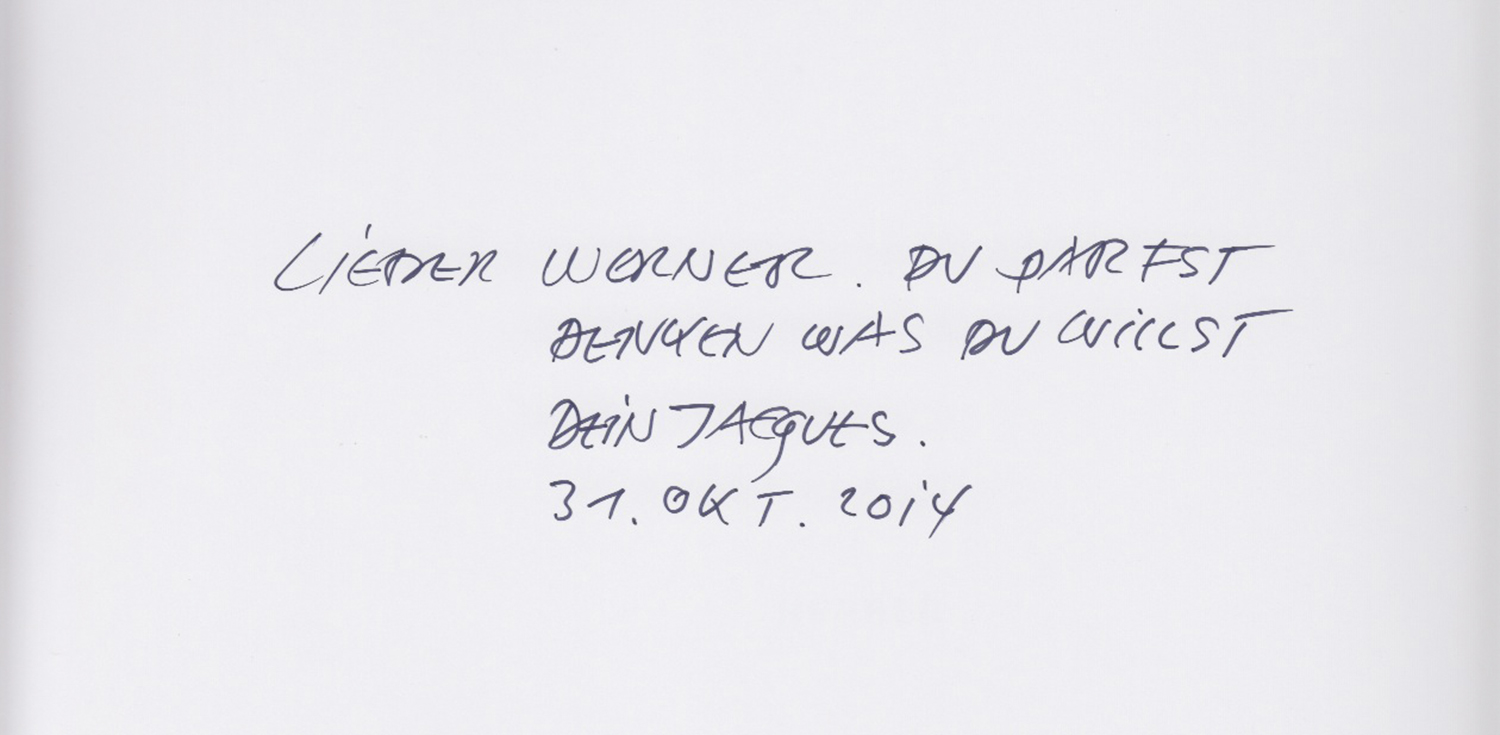 LiEBER WERNER. DU DARFST
DENKEN WAS DU WiLLST
DEiN JACQUES.
31. OKT. 2014